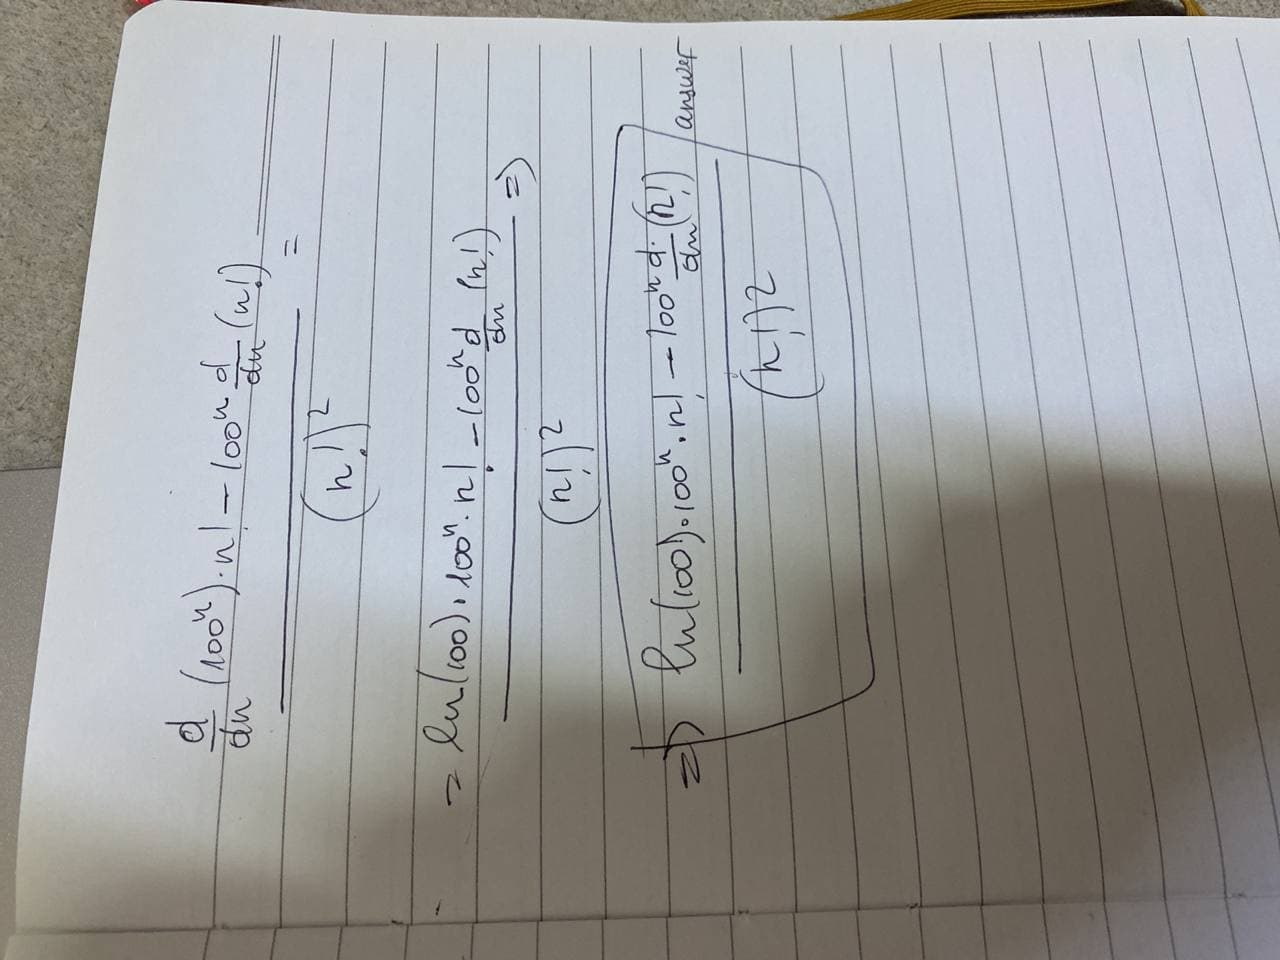 d/dn (100ⁿ)·n! − 100ⁿ d/dn (n!) =
(n!)²
= ln(100)·100ⁿ·n! − 100ⁿ d/dn (n!) =>
(n!)²
=> ln(100)·100ⁿ·n! − 100ⁿ d/dn·(n!) answer
(n!)²